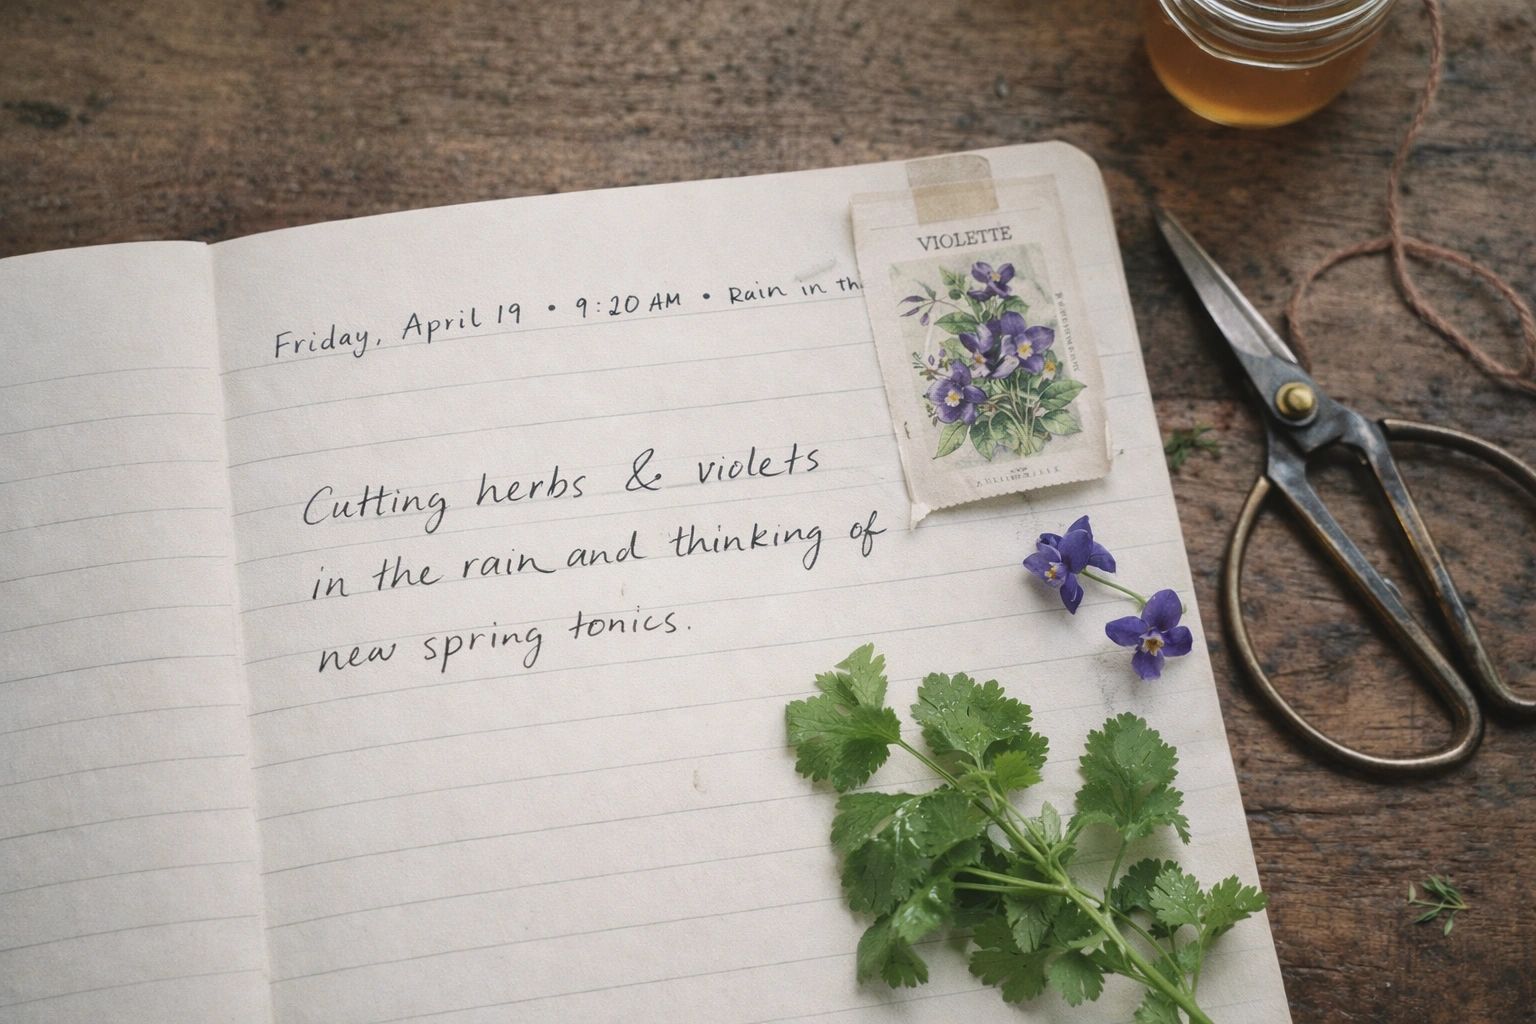 Friday, April 19 • 9:20 AM • Rain in th
VIOLETTE
Cutting herbs & violets
in the rain and thinking of
new spring tonics.